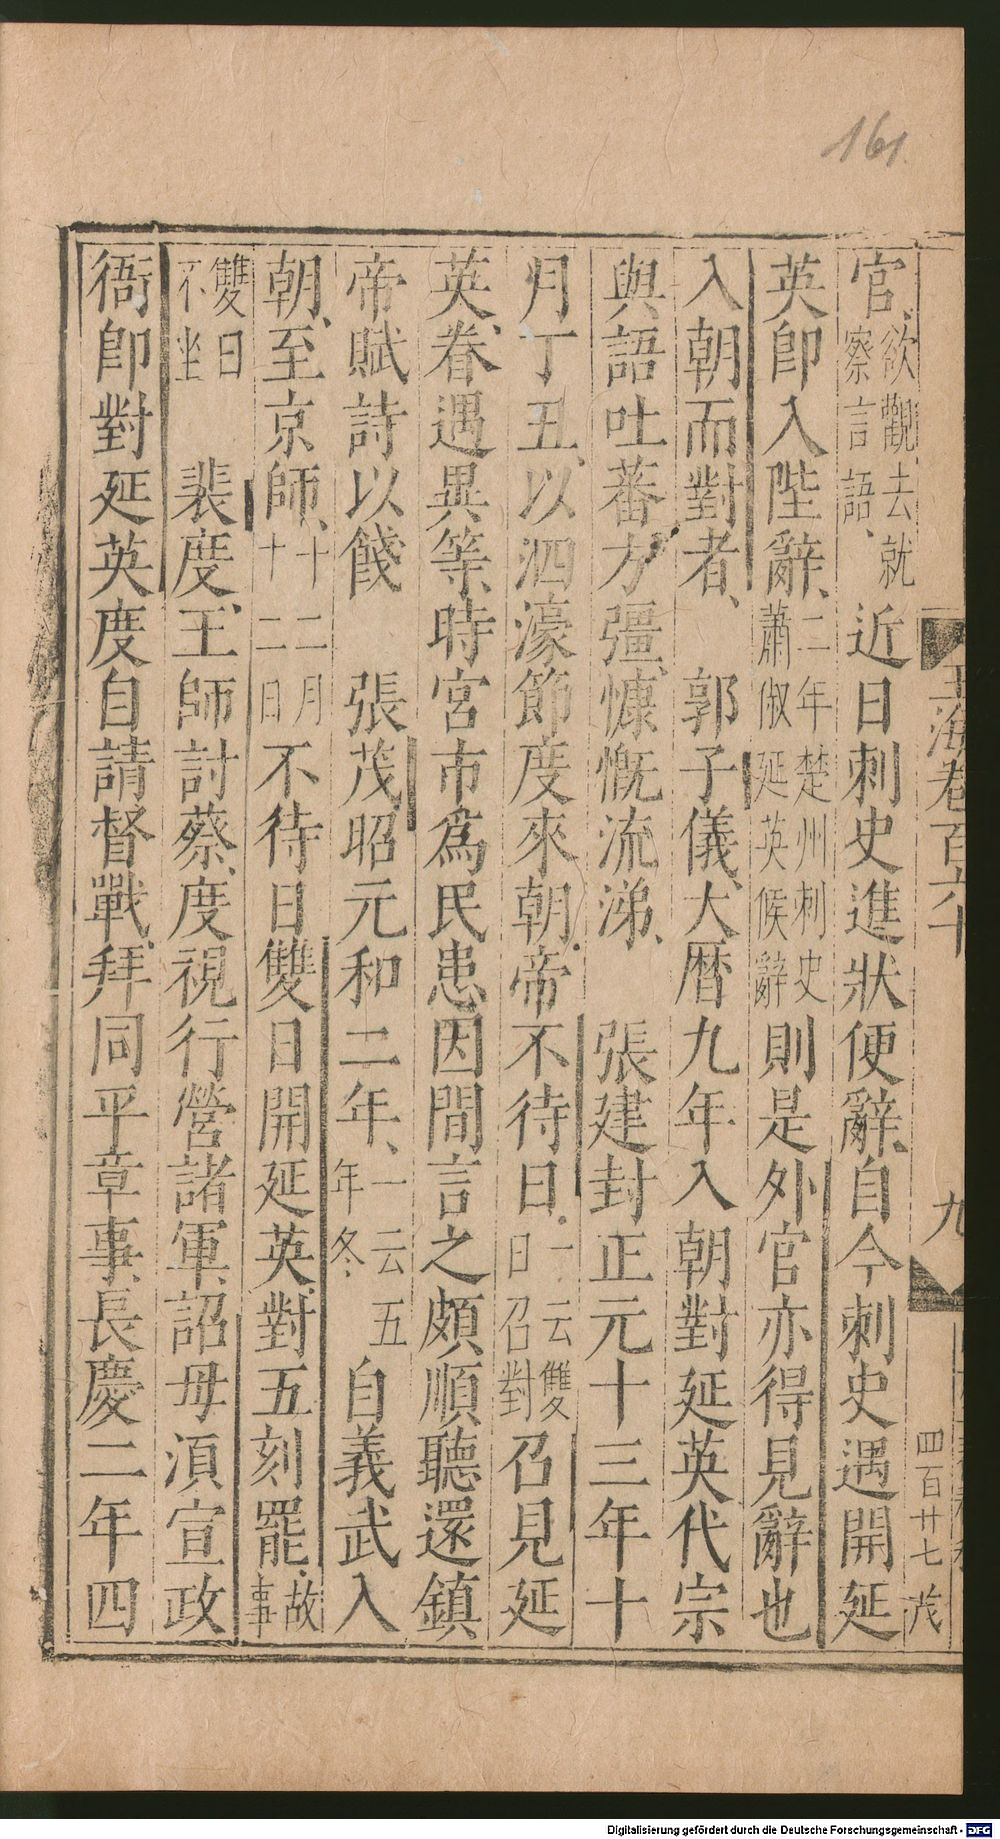 161
玉海卷百六十
九
四百廿七 茂
官欲觀去就察言語近日刺史進狀便辭自今刺史遇開延
英卽入陛辭二年楚州刺史蕭俶延英候辭則是外官亦得見辭也
入朝而對者 郭子儀大曆九年入朝對延英代宗
與語吐蕃方彊慷慨流涕 張建封正元十三年十
月丁丑以泗濠節度來朝帝不待日一云雙日召對召見延
英眷遇異等時宮市爲民患因間言之頗順聽還鎮
帝賦詩以餞 張茂昭元和二年一云五年冬自義武入
朝至京師十二月十二日不待日雙日開延英對五刻罷故事
雙日不坐 裴度王師討蔡度視行營諸軍詔毋湏宣政
衙卽對延英度自請督戰拜同平章事長慶二年四
Digitalisierung gefördert durch die Deutsche Forschungsgemeinschaft - DFG